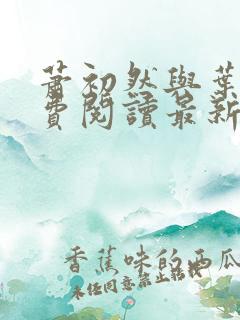 蕭初然與葉
費閱讀最新
香蕉味的西瓜
未經同意禁止轉載